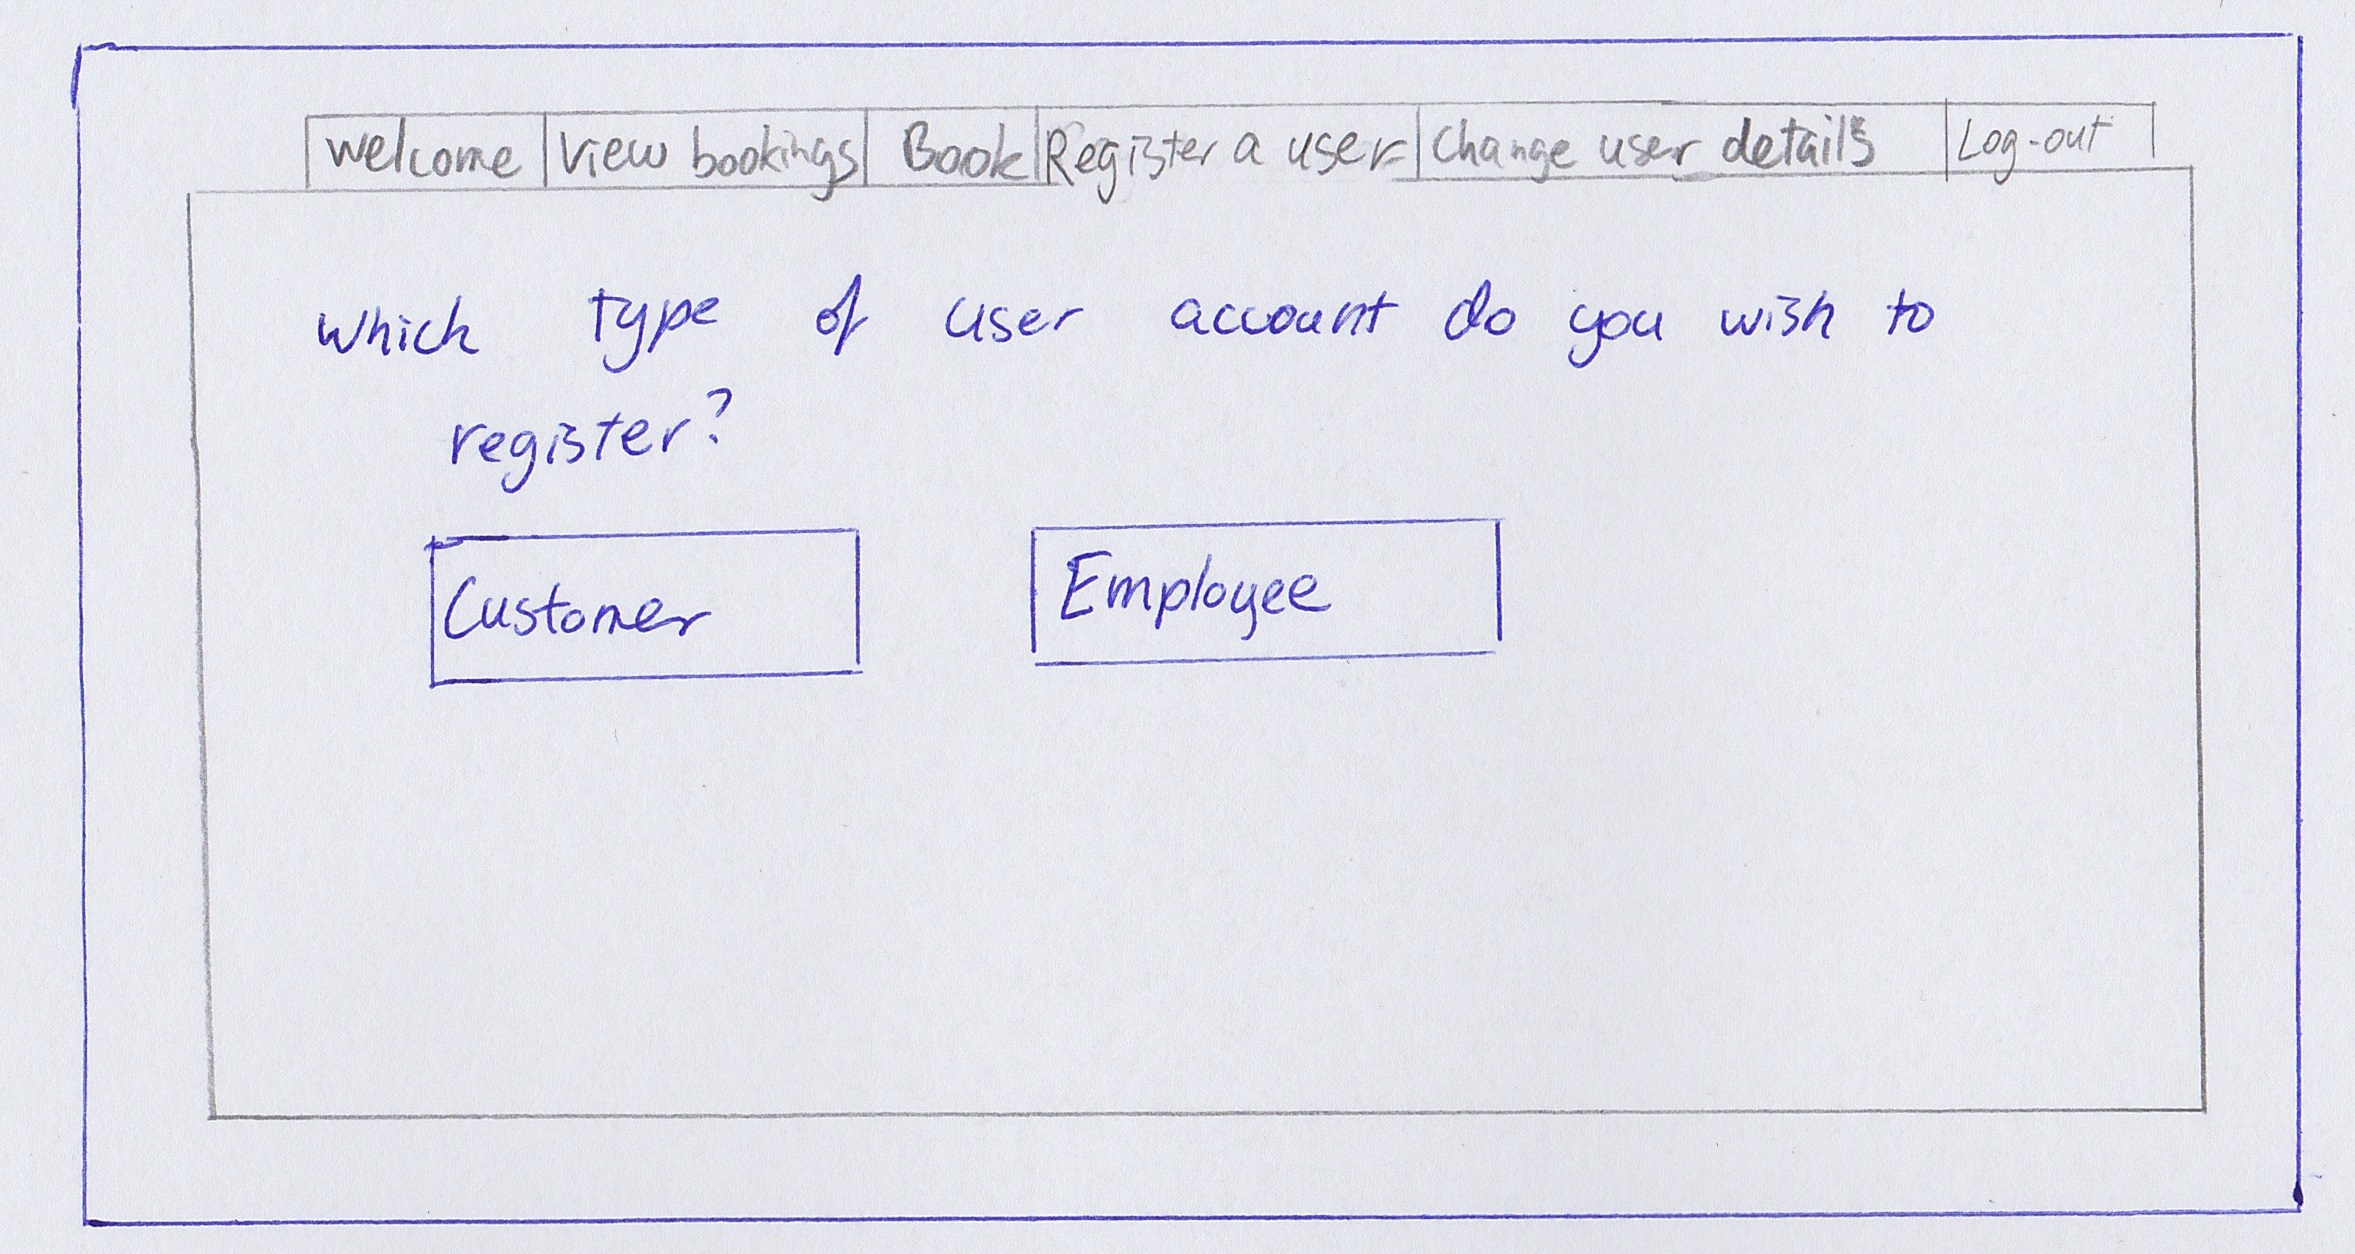 Welcome View bookings Book Register a user Change user details Log-out
which type of user account do you wish to
register?
Customer Employee